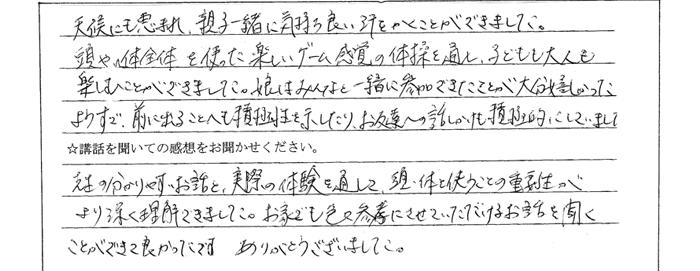 天候にも恵まれ、親子一緒に気持ち良い汗をかくことができました。
頭や体全体を使った楽しいゲーム感覚の体操を通し、子どもも大人も
楽しむことができました。娘はみんなと一緒に参加できたことが大分嬉しかった
ようすで、前に出ることへも積極性を示したり、お友達への話しかけも積極的にしていまして
☆講話を聞いての感想をお聞かせください。
先生の分かりやすいお話と、実際の体験を通して、頭・体と使うことの重要性が
より深く理解できました。お家でも色々参考にさせていただけるお話を聞く
ことができて良かったです ありがとうございました。